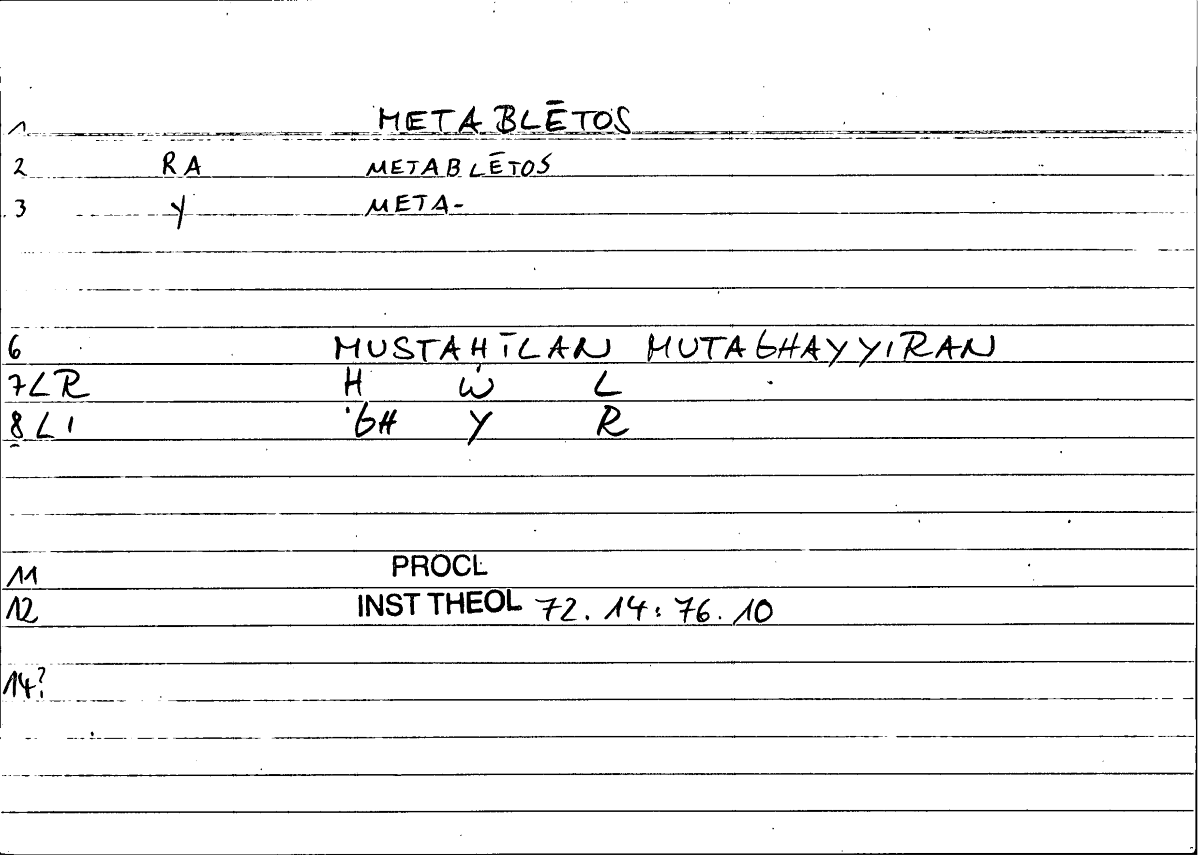 1 METABLĒTOS
2 RA METABLĒTOS
3 Y META-
6 MUSTAḤĪLAN MUTAGHAYYIRAN
7LR Ḥ W L
8LI GH Y R
11 PROCL
12 INST THEOL 72.14:76.10
14?